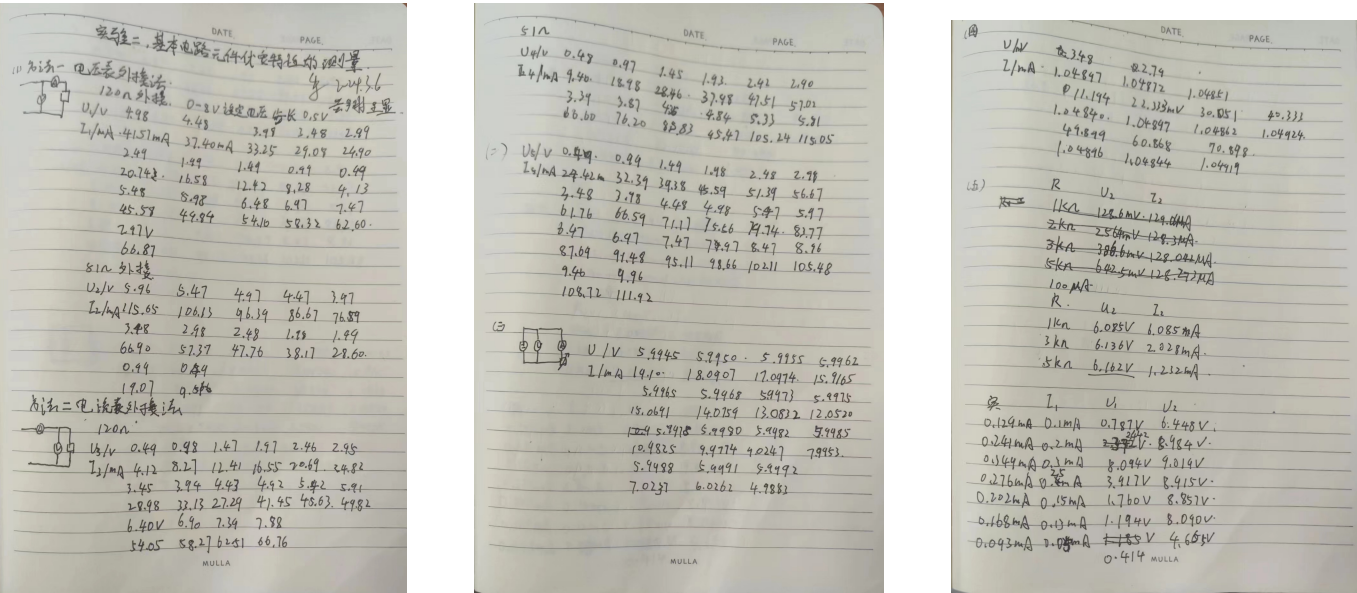 DATE. PAGE.
实验二、基本电路元件伏安特性的测量
(1) 方法一 电压表外接法
2024.3.6
120Ω 外接. 0-8V 设定电压 步长 0.5V
U₁/V 4.98 4.48 3.98 3.48 2.99
I₁/mA 41.57mA 37.40mA 33.25 29.08 24.90
2.49 1.99 1.49 0.99 0.49
20.743 16.58 12.42 8.28 4.13
5.48 5.98 6.48 6.97 7.47
45.58 49.84 54.10 58.32 62.60
7.97V
66.87
51Ω 外接
U₂/V 5.96 5.47 4.97 4.47 3.97
I₂/mA 115.65 106.13 96.39 86.67 76.89
3.48 2.98 2.48 1.98 1.49
66.90 57.37 47.76 38.17 28.60
0.99 0.49
19.07
方法二 电流表外接法
120Ω
U₃/V 0.49 0.98 1.47 1.97 2.46 2.95
I₃/mA 4.12 8.27 12.41 16.55 20.69 24.82
3.45 3.94 4.43 4.92 5.42 5.91
28.98 33.13 27.29 41.45 45.63 49.82
6.40V 6.90 7.39 7.88
54.05 58.27 62.51 66.76
MULLA
51Ω DATE. PAGE.
U₄/V 0.48 0.97 1.45 1.93 2.42 2.90
I₄/mA 9.40 18.98 28.46 37.98 47.51 57.02
3.39 3.87 4.84 5.33 5.81
66.60 76.20 105.24 115.05
(二) U₅/V 0.99 1.49 1.98 2.48 2.98
I₅/mA 24.42m 32.39 39.38 45.59 51.39 56.67
3.48 3.98 4.48 4.98 5.47 5.97
61.76 66.59 71.17 75.56 79.74 83.77
6.47 6.97 7.47 7.97 8.47 8.96
87.69 91.48 95.11 98.66 102.11 105.48
9.46 9.96
108.72 111.92
(三) U/V 5.9945 5.9950 5.9955 5.9962
I/mA 19.10 18.0907 17.0974 15.9165
5.9965 5.9968 5.9973 5.9975
15.0691 14.0759 13.0832 12.0520
5.9978 5.9980 5.9982 5.9985
10.9825 9.9774 9.0247 7.9953
5.9988 5.9991 5.9992
7.0237 6.0262 4.9883
MULLA
(四) DATE. PAGE.
U/mV
I/mA 1.04897 1.04872 1.04851
11.194 22.333mV 30.051 40.333
1.04840 1.04897 1.04862 1.04924
49.899 60.868 70.898
1.04896 1.04844 1.04919
(五) R U₂ I₂
1kΩ 128.6mV
2kΩ 128.3μA
3kΩ 128.042μA
5kΩ 128.292μA
100μA
R. U₂ I₂
1kΩ 6.085V 6.085mA
3kΩ 6.136V 2.028mA
5kΩ 6.162V 1.232mA
实 I₁ U₁ U₂
0.124mA 0.1mA 0.787V 6.448V
0.241mA 0.2mA 8.984V
0.349mA 0.3mA 8.094V 9.014V
0.276mA 3.917V 8.915V
0.202mA 0.15mA 1.760V 8.857V
0.168mA 0.13mA 1.194V 8.090V
0.093mA 0.05mA
0.414 MULLA